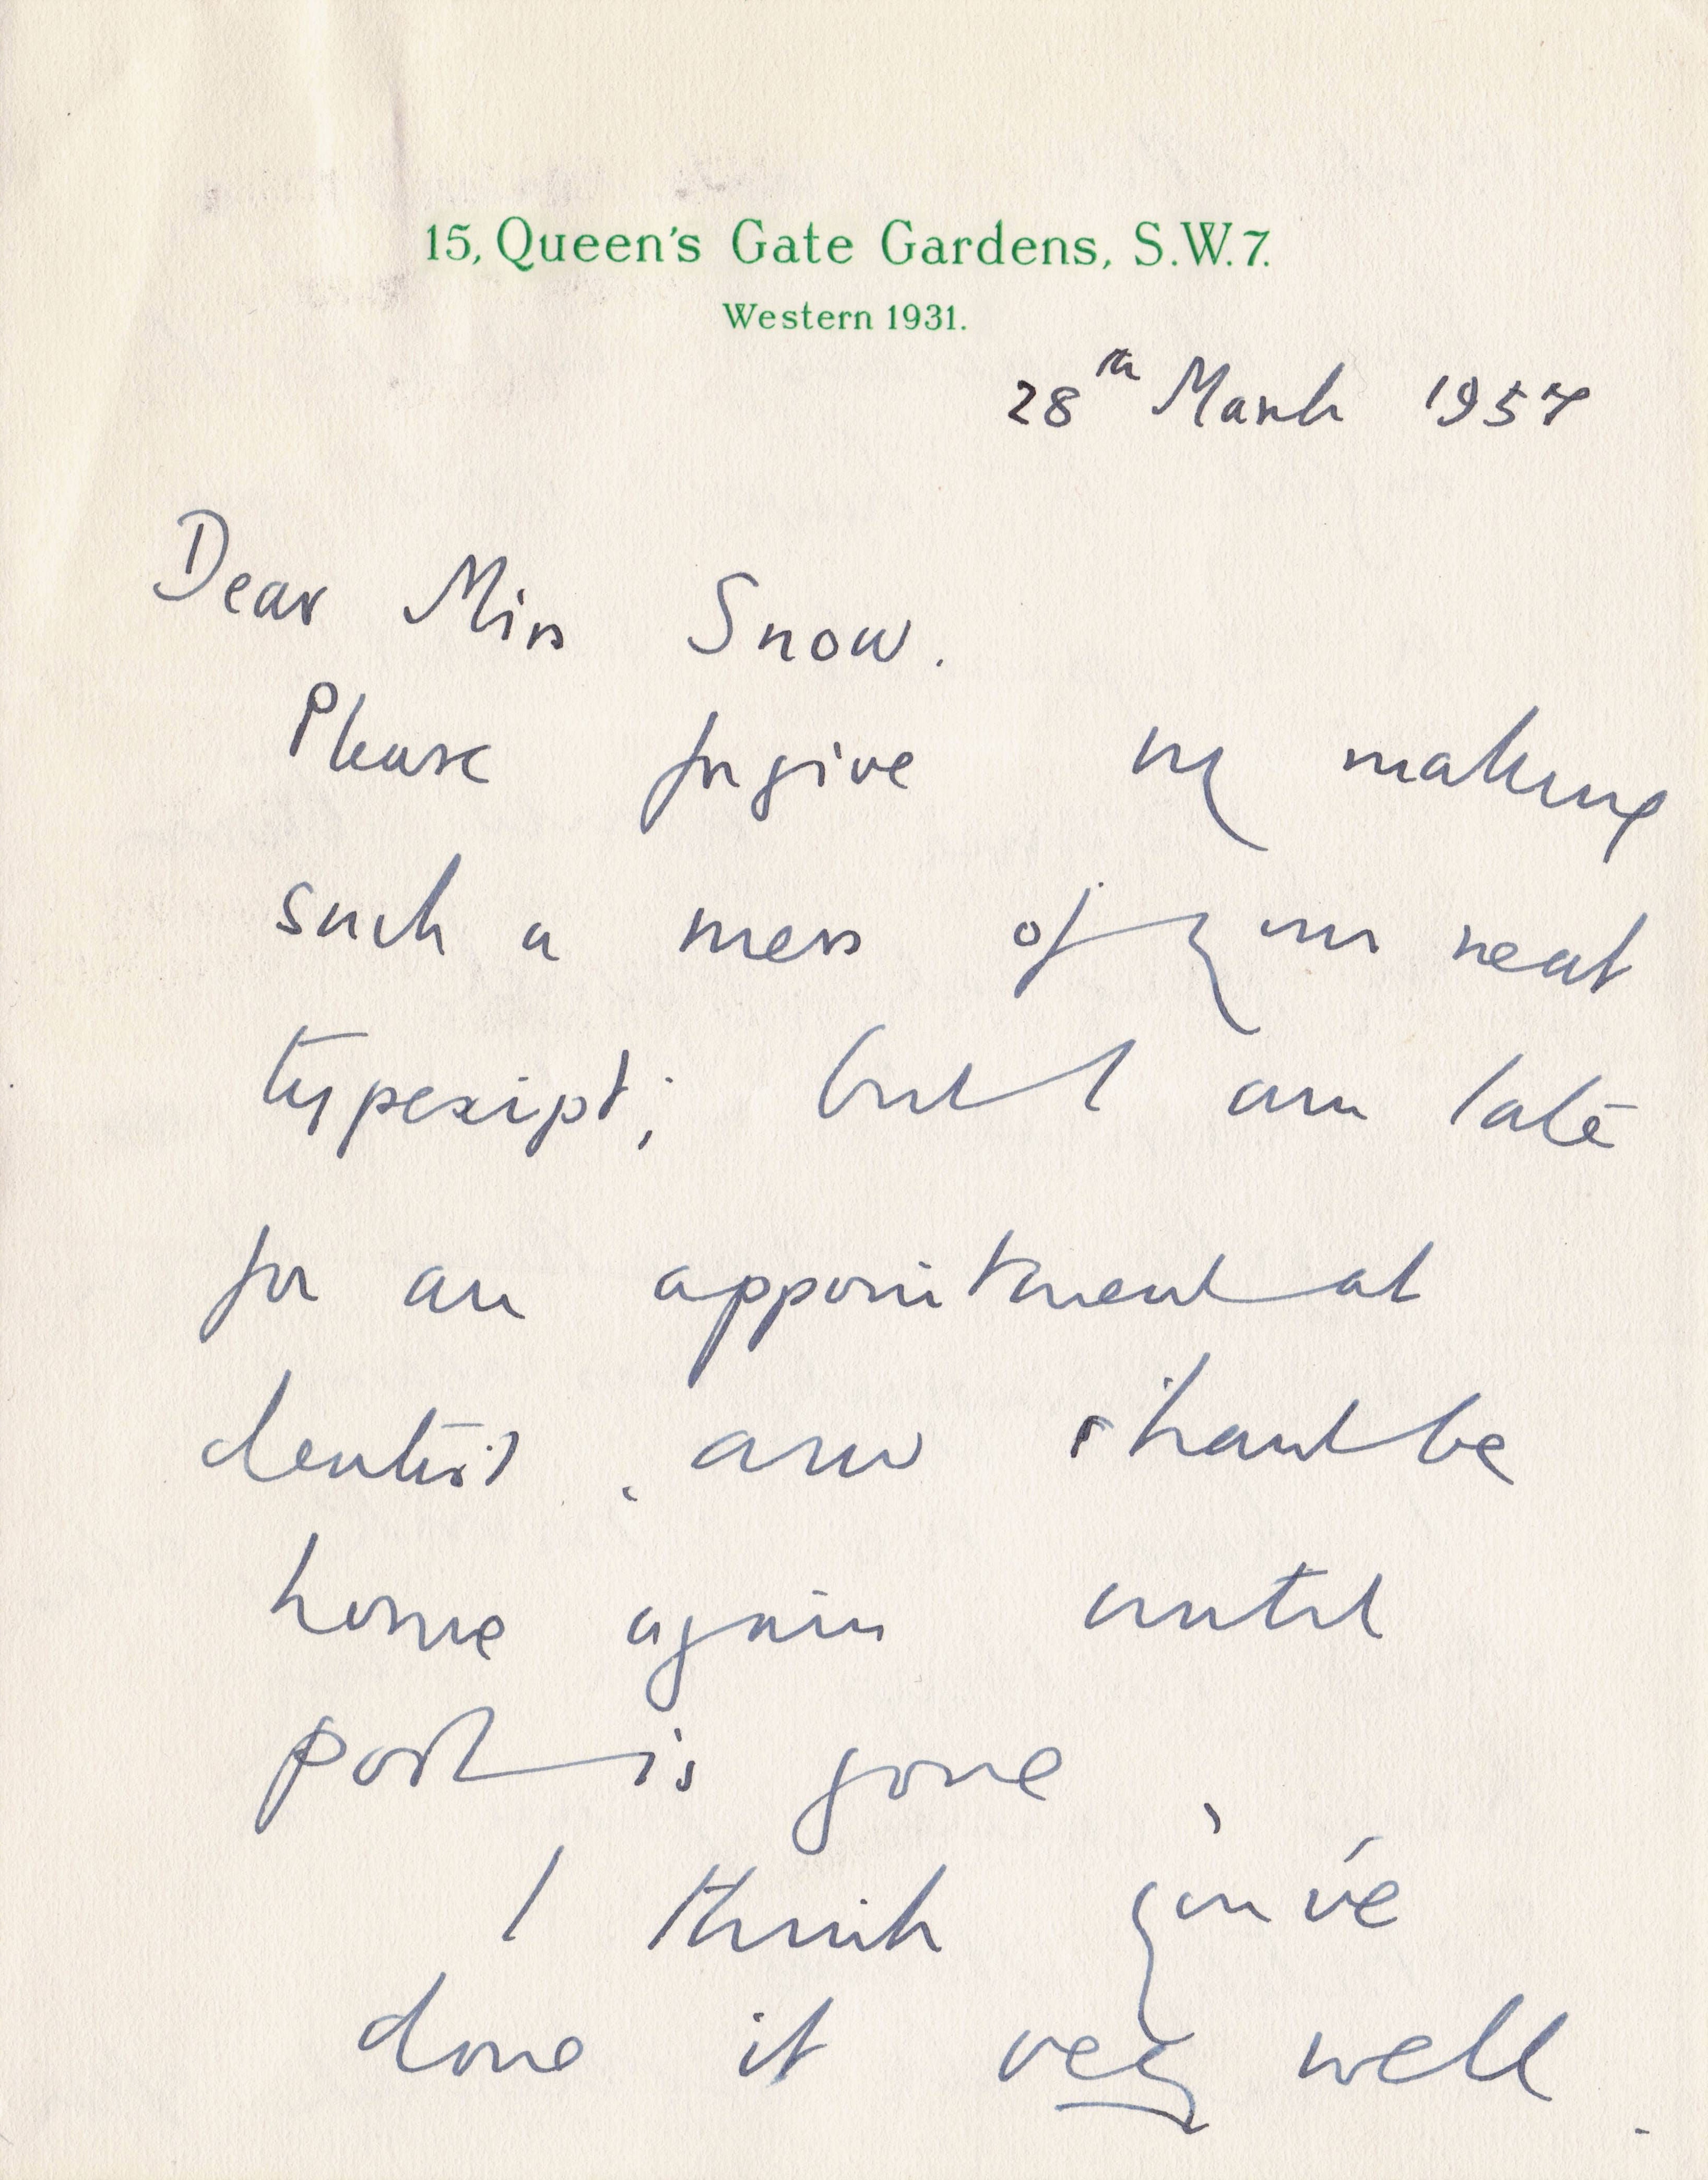 15, Queen's Gate Gardens, S.W.7.
Western 1931.
28th March 1957
Dear Miss Snow.
Please forgive my making
such a mess of your neat
typescript; but I am late
for an appointment at
dentist, and shant be
home again until
post is gone.
I think you've
done it very well.